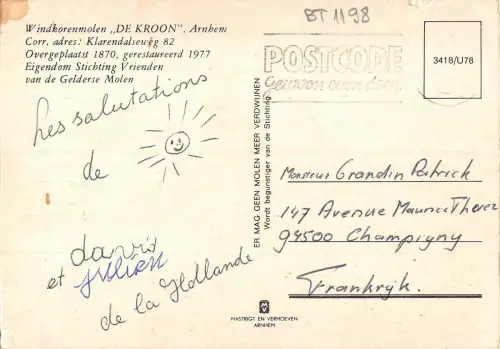 Windkorenmolen „DE KROON", Arnhem
Corr. adres: Klarendalseweg 82
Overgeplaatst 1870, gerestaureerd 1977
Eigendom Stichting Vrienden
van de Gelderse Molen
les salutations
de
david
et julien
de la Hollande
ER MAG GEEN MOLEN MEER VERDWIJNEN
Wordt begunstiger van de Stichting
BT 1198
POSTCODE
Gewoon even doen.
3418/U78
Monsieur Grandin Patrick
147 Avenue Maurice Thorez
94500 Champigny
Frankrijk.
MASTRIGT EN VERHOEVEN
ARNHEM